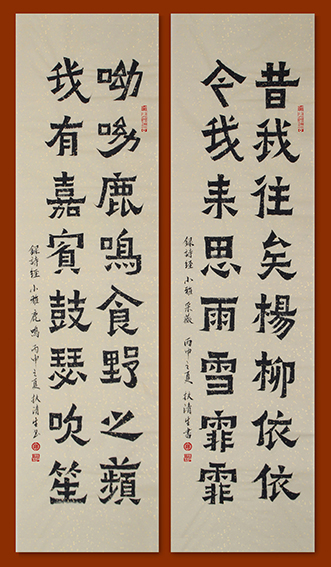 昔我往矣楊柳依依
今我来思雨雪霏霏
録詩經小雅采薇 丙申之夏 清生書
呦呦鹿鳴食野之蘋
我有嘉賓鼓瑟吹笙
録詩經小雅鹿鳴 丙申之夏 清生書